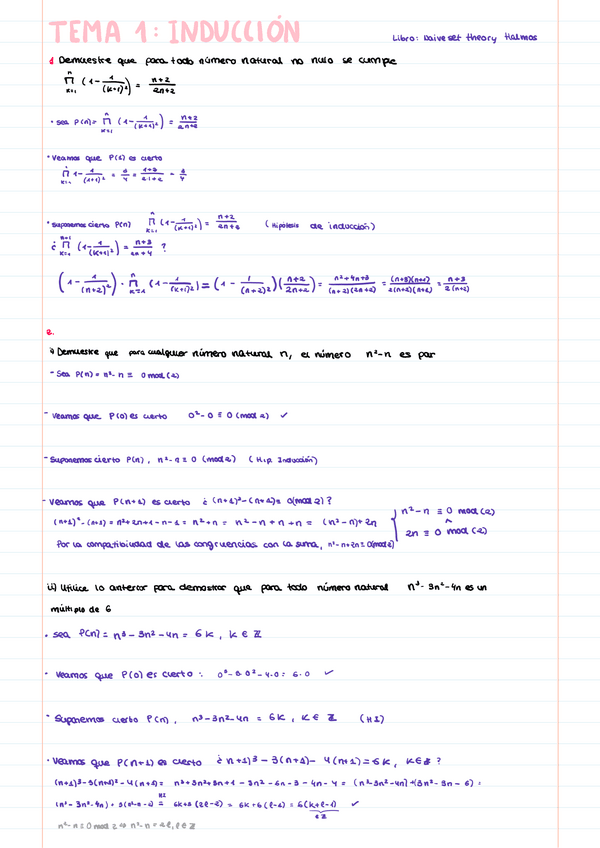 TEMA 1: INDUCCIÓN
Libro: Naive set theory Halmos
1 Demuestre que para todo número natural no nulo se cumple
∏ₖ₌₁ⁿ (1 - 1/(k+1)²) = n+2/2n+2
· Sea P(n) = ∏ₖ₌₁ⁿ (1 - 1/(k+1)²) = n+2/2n+2
· Veamos que P(1) es cierto
∏ₖ₌₁¹ 1 - 1/(1+1)² = 3/4 = 1+2/2·1+2 = 3/4
· Suponemos cierto P(n) ∏ₖ₌₁ⁿ (1 - 1/(k+1)²) = n+2/2n+2 (Hipótesis de inducción)
¿ ∏ₖ₌₁ⁿ⁺¹ (1 - 1/(k+1)²) = n+3/2n+4 ?
(1 - 1/(n+2)²) · ∏ₖ₌₁ⁿ (1 - 1/(k+1)²) = (1 - 1/(n+2)²)(n+2/2n+2) = n²+4n+3/(n+2)(2n+2) = (n+3)(n+1)/2(n+2)(n+1) = n+3/2(n+2)
2.
i) Demuestre que para cualquier número natural n, el número n²-n es par
- Sea P(n) = n²-n ≡ 0 mod(2)
- Veamos que P(0) es cierto 0²-0 ≡ 0 (mod 2) ✓
- Suponemos cierto P(n), n²-n ≡ 0 (mod 2) (Hip. Inducción)
- Veamos que P(n+1) es cierto ¿ (n+1)²-(n+1) ≡ 0(mod 2) ?
(n+1)²-(n+1) = n²+2n+1-n-1 = n²+n = n²-n+n+n = (n²-n)+2n { n²-n ≡ 0 mod(2) ∧ 2n ≡ 0 mod(2)
Por la compatibilidad de las congruencias con la suma, n²-n+2n ≡ 0(mod 2)
ii) Utilice lo anterior para demostrar que para todo número natural n³-3n²-4n es un
múltiplo de 6
· Sea P(n) = n³-3n²-4n = 6k, k ∈ ℤ
· Veamos que P(0) es cierto : 0³-3·0²-4·0 = 6·0 ✓
- Suponemos cierto P(n), n³-3n²-4n = 6k, k ∈ ℤ (HI)
· Veamos que P(n+1) es cierto ¿ n+1)³-3(n+1)-4(n+1) = 6k, k∈ℤ ?
(n+1)³-3(n+1)²-4(n+1) = n³+3n²+3n+1-3n²-6n-3-4n-4 = (n³-3n²-4n)+(3n²-3n-6) =
(n³-3n²-4n)+3(n²-n-2) =ᴴᴵ 6k+3(2l-2) = 6k+6(l-1) = 6(k+l-1) ✓
∈ℤ
n²-n ≡ 0 mod 2 ⇒ n²-n = 2l, l∈ℤ